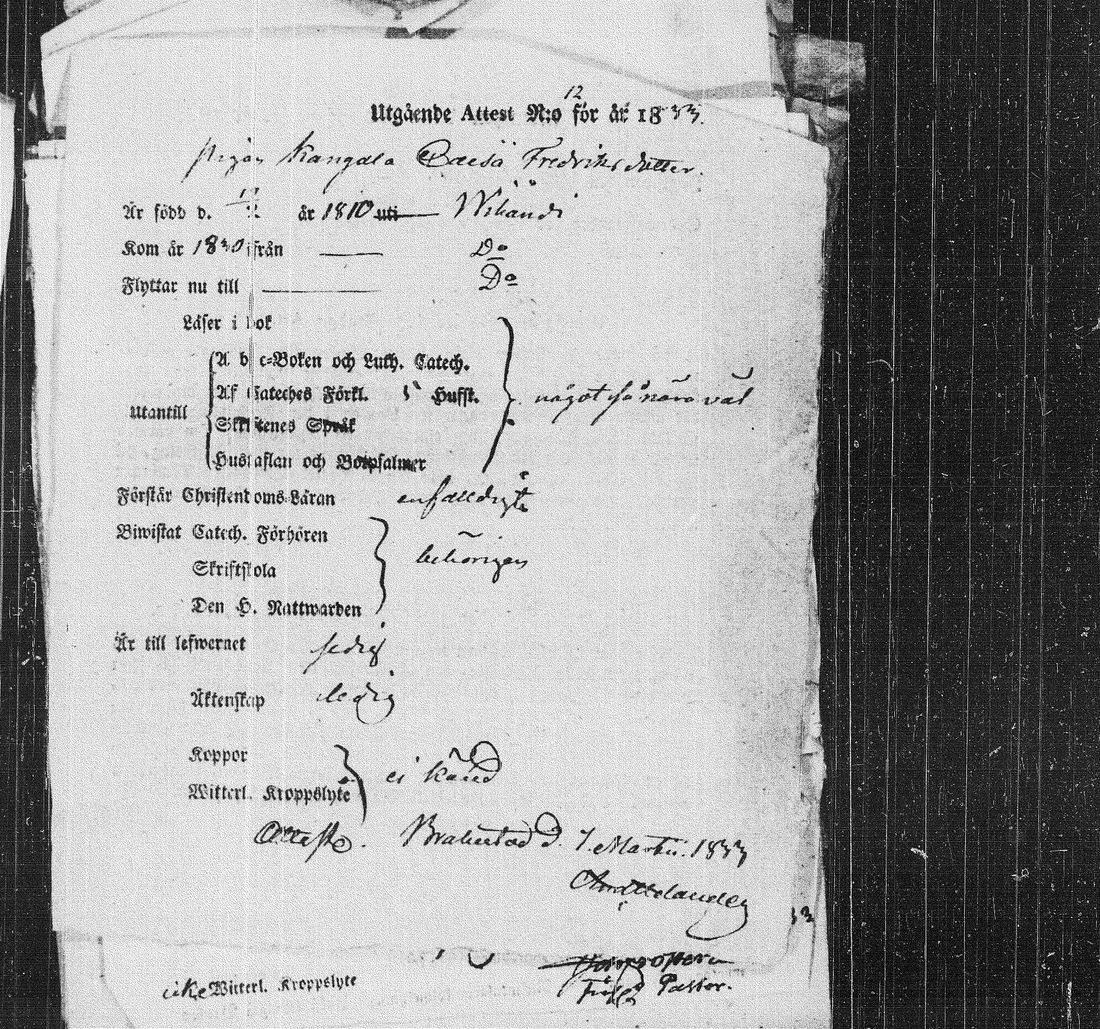 12
Utgående Attest N:o för år 1833.
Pigan Kangala Caisa Fredriks dotter.
Är född d. år 1810 uti Wihandi
Kom år 1830 ifrån Do
Flyttar nu till Do
Läser i bok
Utantill
A b c-Boken och Luth. Catech.
Af Cateches Förkl. Hufst.
Skriftenes Språk
Hustaflan och Botpsalmer
något så nära väl
Förstår Christendoms-Läran enfalldigt
Biwistat Catech. Förhören
Skriftskola
Den H. Nattwarden
behörigen
Är till lefwernet sedig
Äktenskap ledig
Koppor
Witterl. Kroppslyte
ei känd
Attest. Brahestad d. 7 Martii. 1833
33
Witterl. Kroppslyte
Pastor.